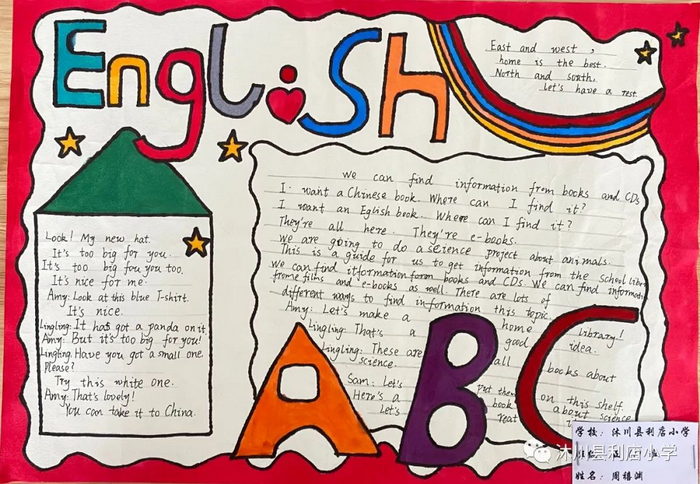 English
East and west,
home is the best.
North and south,
Let's have a rest
Look! My new hat.
It's too big for you.
It's too big fou you too.
It's nice for me.
Amy: Look at this blue T-shirt.
It's nice.
Lingling: It has got a panda on it.
Amy: But it's too big for you!
Lingling: Have you got a small one
Please?
Try this white one.
Amy: That's lovely!
You can take it to China.
we can find information from books and CDs
I want a Chinese book. Where can I find it?
I want an Eglish book. Where can I find it?
They're all here. They're e-books.
we are going to do a science project about animals.
This is a guide for us to get information from the School
we can find itformation form books and CDs We can find
frome films and e-books as well. There are lots of
different ways to find information this topic.
Amy: Let's make a home library!
Lingling: That's a good idea.
Lingling: These are all books about
science.
Sam: Let's put them on this shelf
Here's a book about science
Let's
ABC
学校: 沐川县利店小学
姓名: 周禧渊
沐川县利店小学